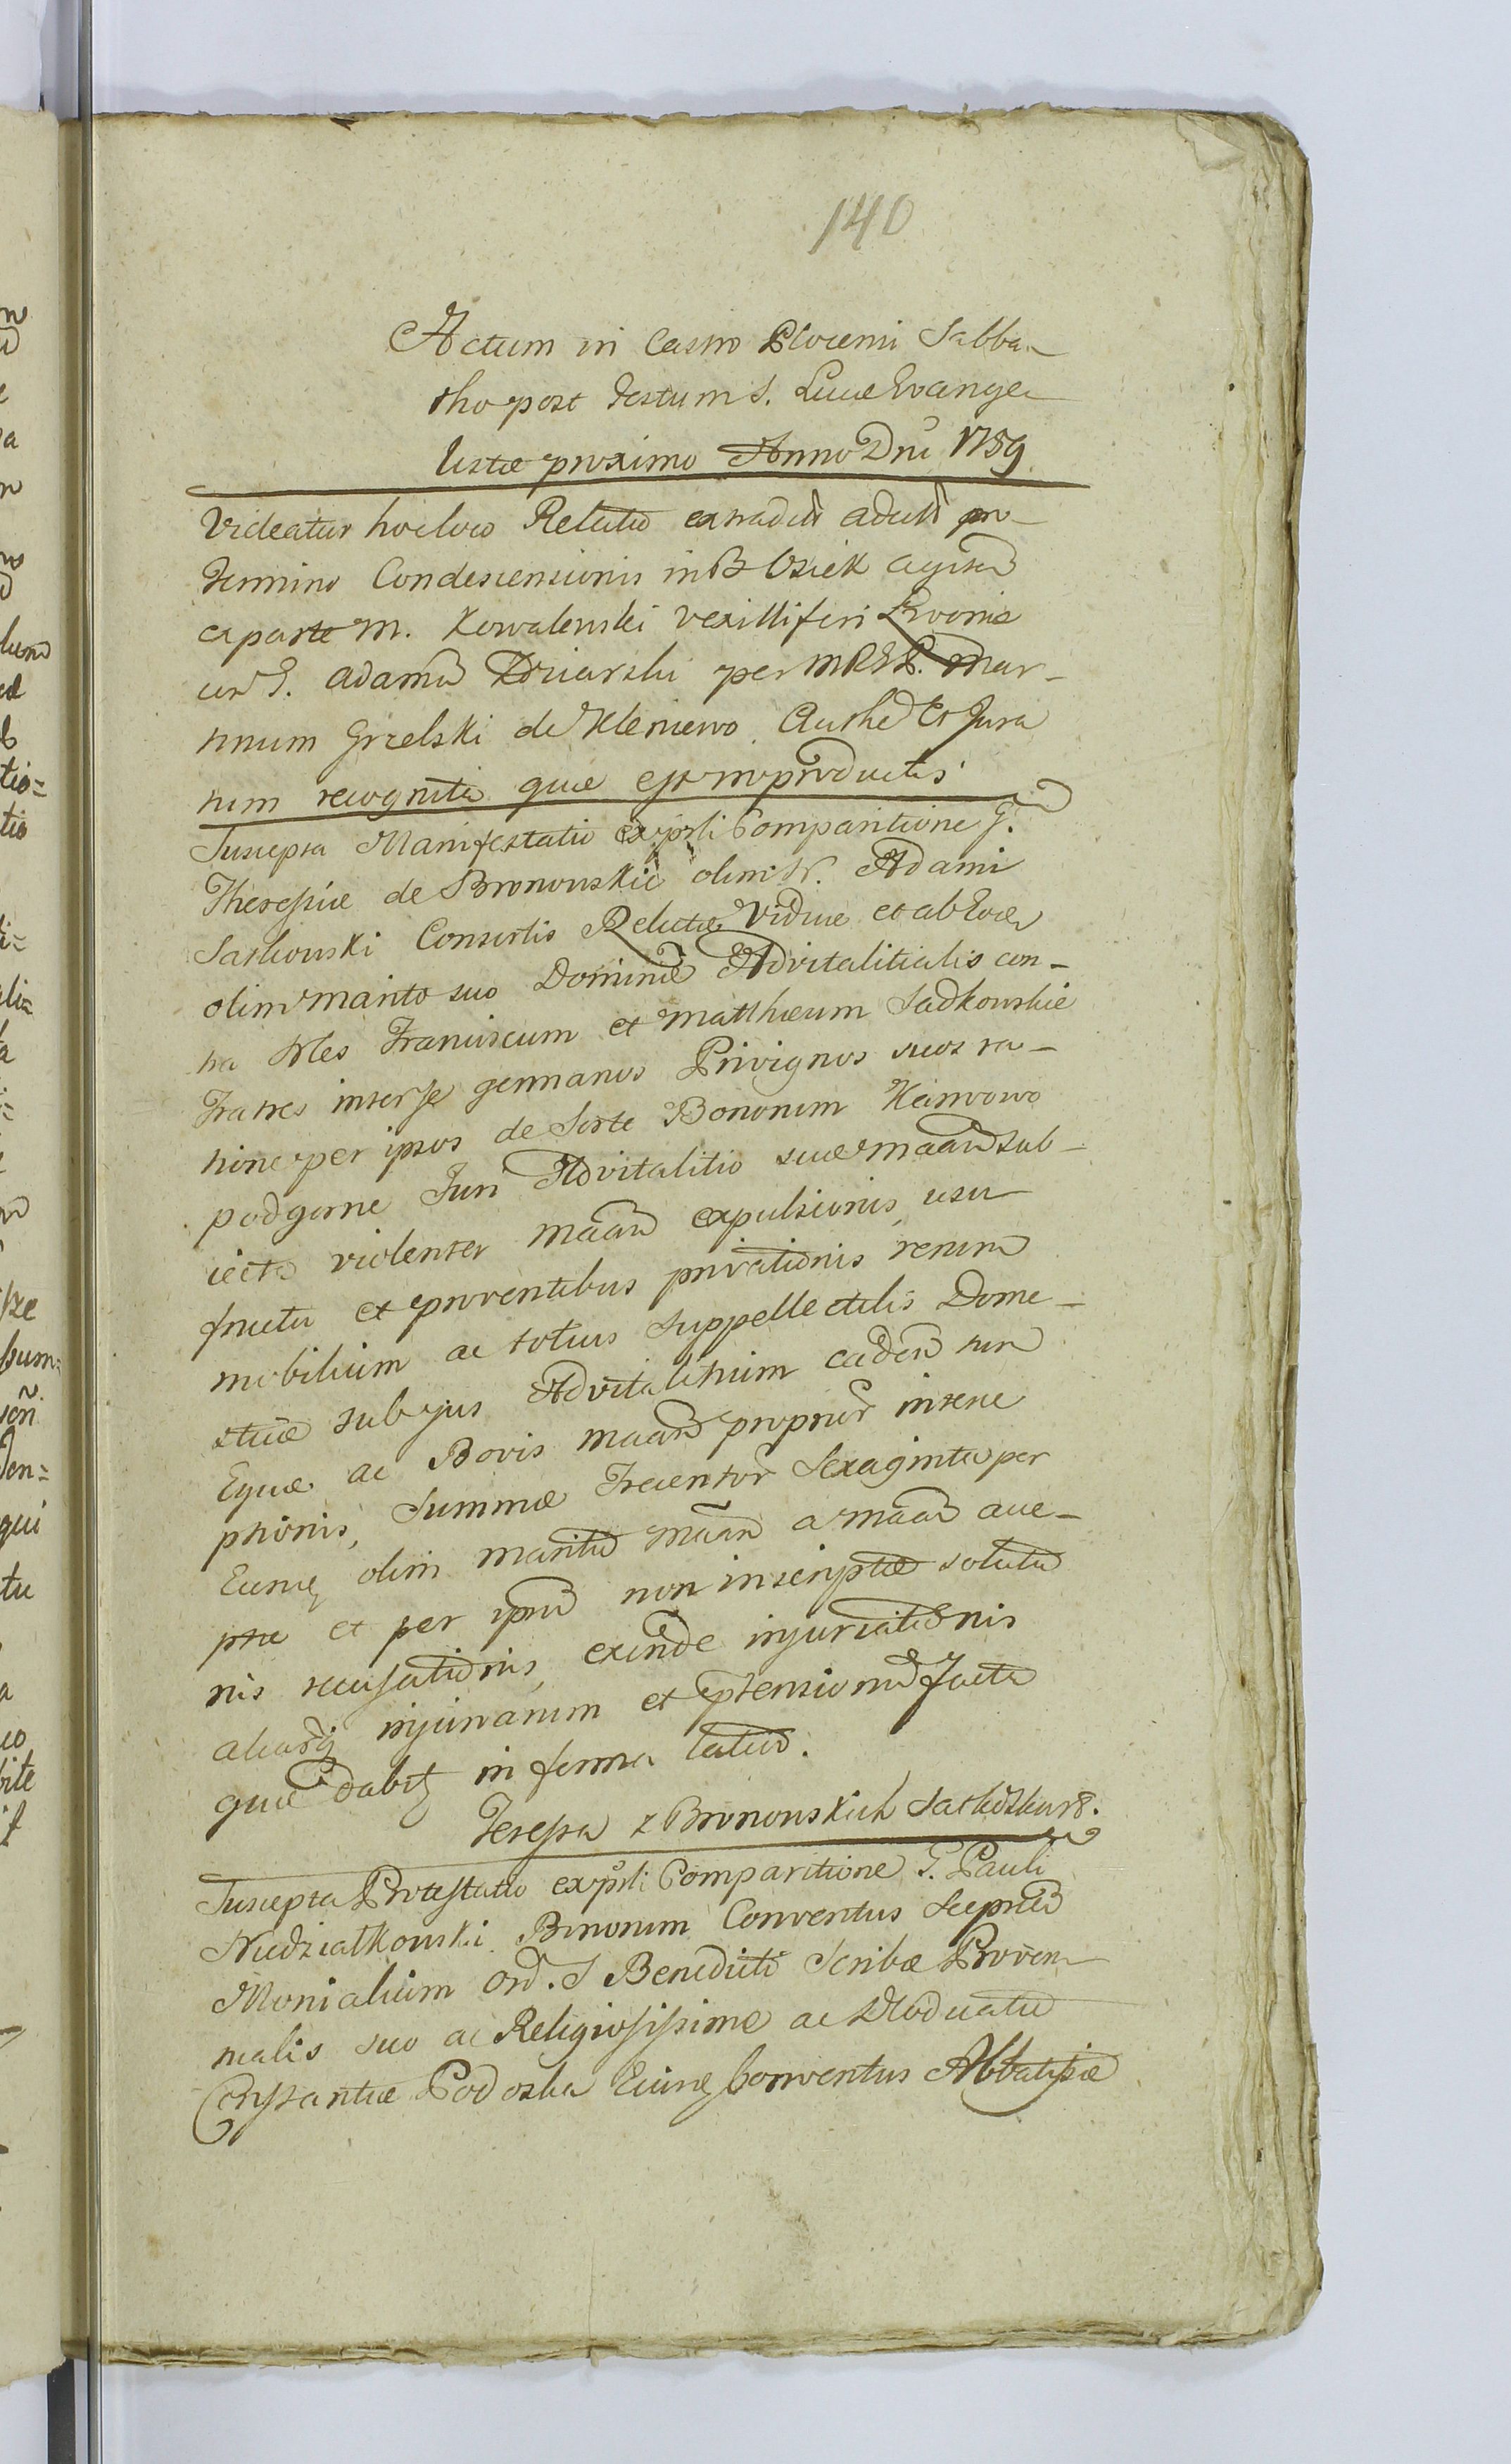 140
Actum in Castro Plocensi Sabba-
tho post Festum S. Lucae Evange-
listae proximo Anno Dni 1759
Videatur hocloco Relatio extradit aducit pro
Termino Condescensionis in B Osiek
ex parte M. Kowalewski Vexilliferi Livoniae
cu G. Adamu Dziarski per MRSP. Mar-
tinum Grzelski de Kleniewo Authe Et Jura
tum recognita quae est inproductis
Suscepta Manifestatio ex psli Comparitione G.
Theressiae de Bromowskie olim N. Adami
Sackowski Consortis Relictae Viduae et ab Eoe
olim marito suo Dominae Advitalitialis con-
tra Nles Franciscum et Matthaeum Sadkowskie
Fratres inter se germanos Privignos suos ra-
tione per ipsos de Sorte Bonorum
podgorne Juri Advitalitio suae maan sub-
iecta violenter maan expulsionis usu
fructu et proventibus privationis rerum
mobilium ac totius suppellectilis Dome-
sticae sub jus Advitalitium caden tum
Equae ac Bovis maan proprior interce
ptionis, Summae Trecentor Sexaginta per
Eunq olim maritu maan a maan acce-
ptae et per ipsu non inscriptae solutio
nis recusationis, exinde injuriationis
aliarq injuriarum et ptensionu facta
quae dabit in forma latiu.
Teressa z Bromowskich
Suscepta Protestatio ex psli Comparitione G. Pauli
Niedzialkowski Bonorum Conventus Sceprcen
Monialium Ord. S Benedicti Scribae Proven-
tualis suo ac Religiosissimae ac
Constantiae Podoska Eiusq Conventus Abbatissae